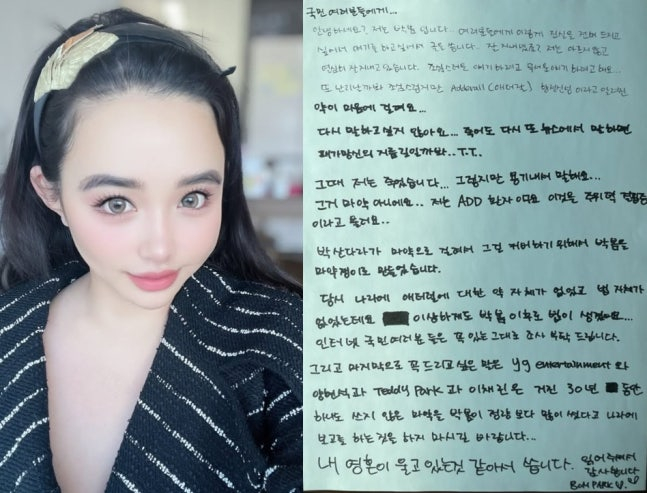 국민 여러분들에게...
안녕하세요? 저는 박봄 입니다... 여러분들에게 이렇게 진심을 전해 드리고
싶어서 얘기를 하고싶어서 글을 씁니다. 잘 지내셨죠? 저는 아프지 않고
열심히 잘지내고 있습니다. 조심스러운 얘기 하려고 무서운얘기 하려고 해요...
또 난리날까봐 조심스럽지만 Adderall (애더럴) 향정신성 이라고 알려진
약이 마음에 걸려요...
다시 말하고 싶지 않아요... 죽어도 다시 또 뉴스에서 말하면
패가망신의 지름길일까봐.. T.T..
그때 저는 죽었습니다... 그렇지만 용기내서 말해요...
그거 마약 아니에요.. 저는 ADD 환자 이구요 이것은 주의력 결핍증
이라고 들려요..
박산다라가 마약으로 걸려서 그걸 커버하기 위해서 박봄을
마약쟁이로 만들었습니다.
당시 나라에 애더럴에 대한 약 자체가 없었고 법 자체가
없었는데요 이상하게도 박봄 이후로 법이 생겼어요...
인터넷 국민여러분 들은 꼭 있는그대로 조사 부탁 드립니다.
그리고 마지막으로 꼭 드리고 싶은 말은 yg entertainment 와
양현석과 Teddy Park 과 이채린은 거진 30년 동안
하나도 쓰지 않은 마약을 박봄이 정량 보다 많이 썼다고 나라에
보고를 하는것은 하지 마시길 바랍니다...
내 영혼이 울고 있는것 같아서 씁니다. 읽어주셔서
감사합니다
BOM PARK